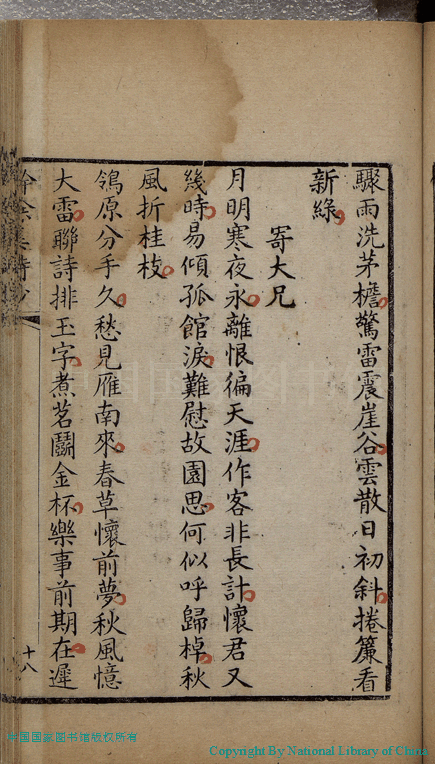 驟雨洗茅檐驚雷震崖谷雲散日初斜捲簾看
新綠
寄大兄
月明寒夜永離恨徧天涯作客非長計懷君又
幾時易傾孤館淚難慰故園思何似呼歸棹秋
風折桂枝
鴒原分手久愁見雁南來春草懷前夢秋風憶
大雷聯詩排玉字煮茗鬭金杯樂事前期在遲
十八
中国国家图书馆版权所有
Copyright By National Library of China